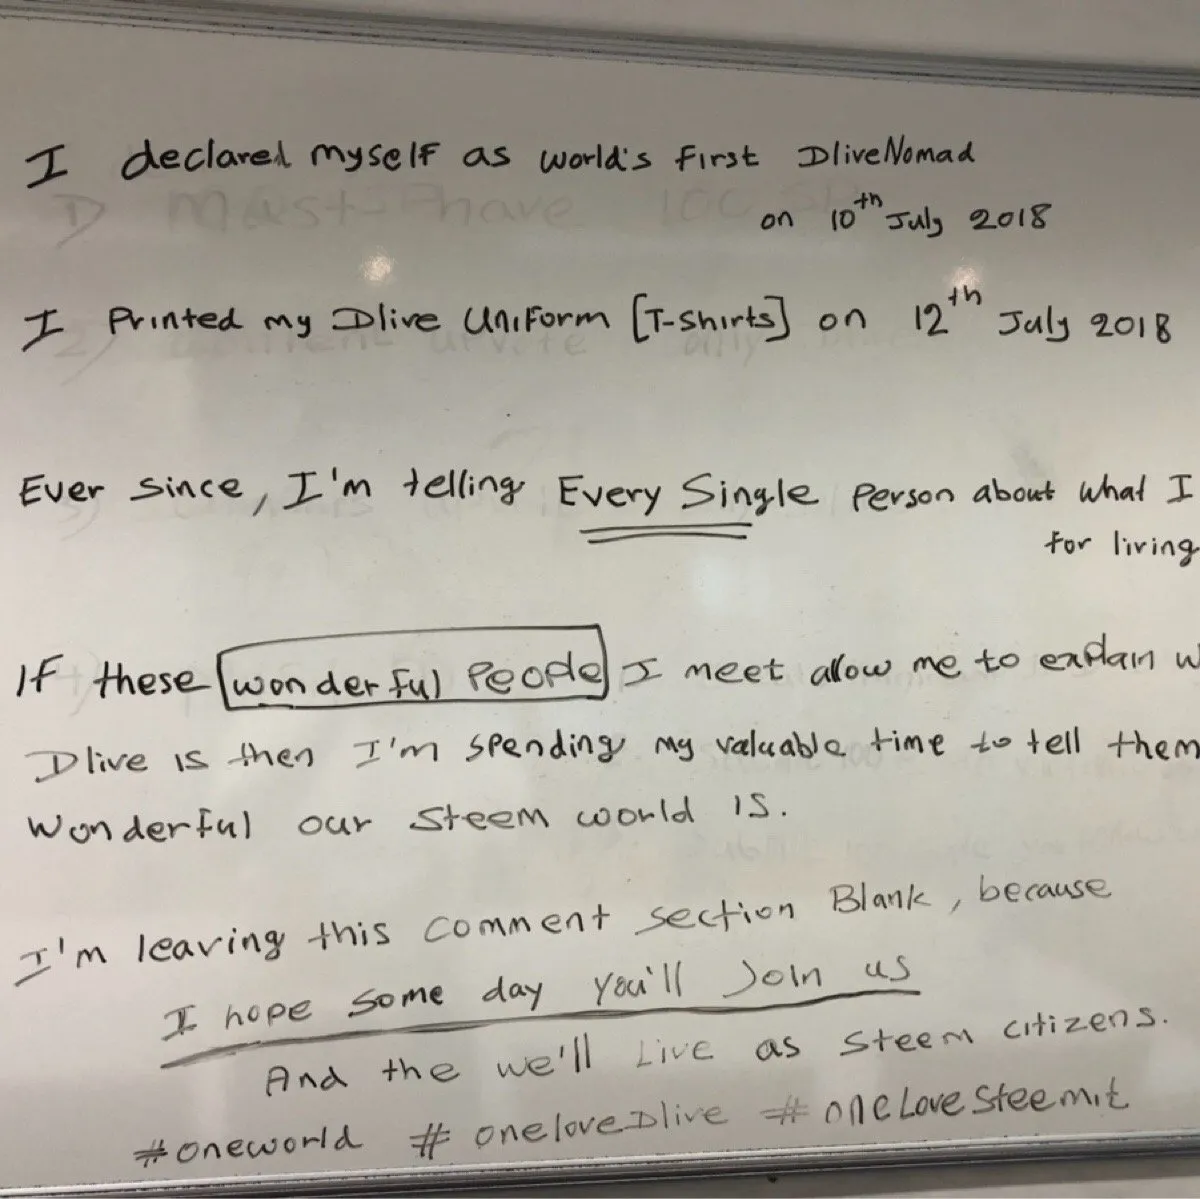 I declared myself as world's First DliveNomad
on 10th July 2018
I Printed my Dlive UniForm [T-Shirts] on 12th July 2018
Ever since, I'm telling Every Single Person about what I
for living
IF these wonderful People I meet allow me to explain w
Dlive is then I'm spending my valuable time to tell them
Wonderful our Steem world is.
I'm leaving this comment section Blank, because
I hope some day you'll Join us
And the we'll Live as steem citizens.
#oneworld #oneloveDlive #oneLoveSteemit